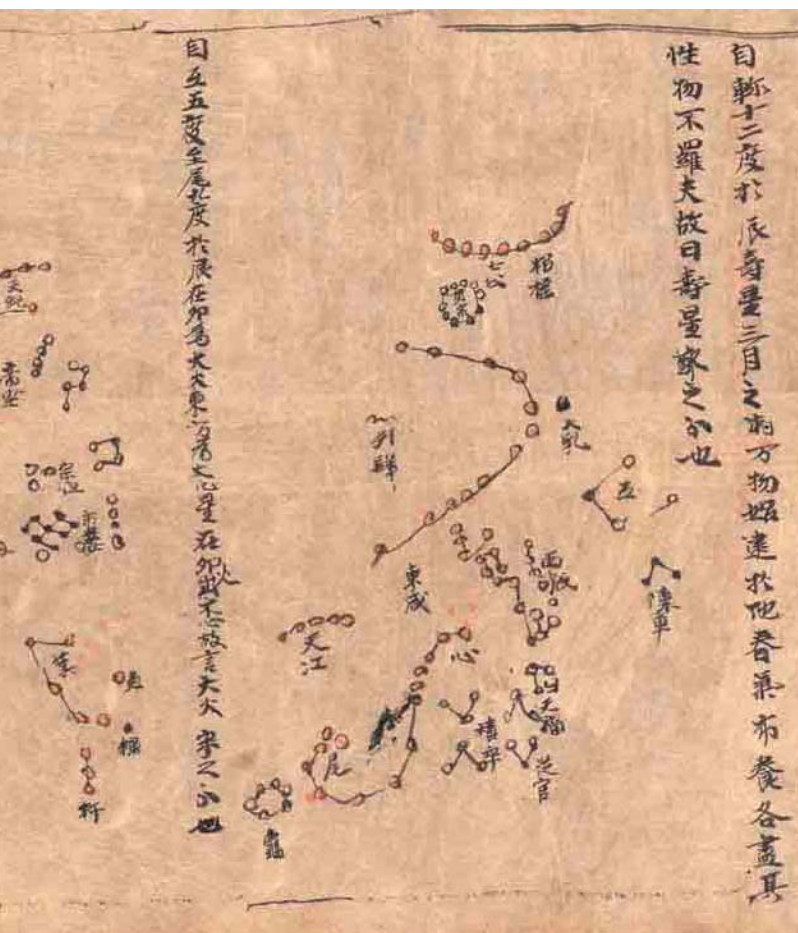 自軫十二度於辰壽星三月之時万物始達於地春氣布養各盡其
性物不羅夫故曰壽星鄭之分也
招搖
七公
貫索
天乳
列肆
氐
陣車
西咸
東咸
心
天江
天福
積卒
從官
尾
龜
自氐五度至尾九度於辰在卯為大火東方為木心星在卯火出木心故言大火宋之分也
天紀
宗人
市樓
箕
糠
杵